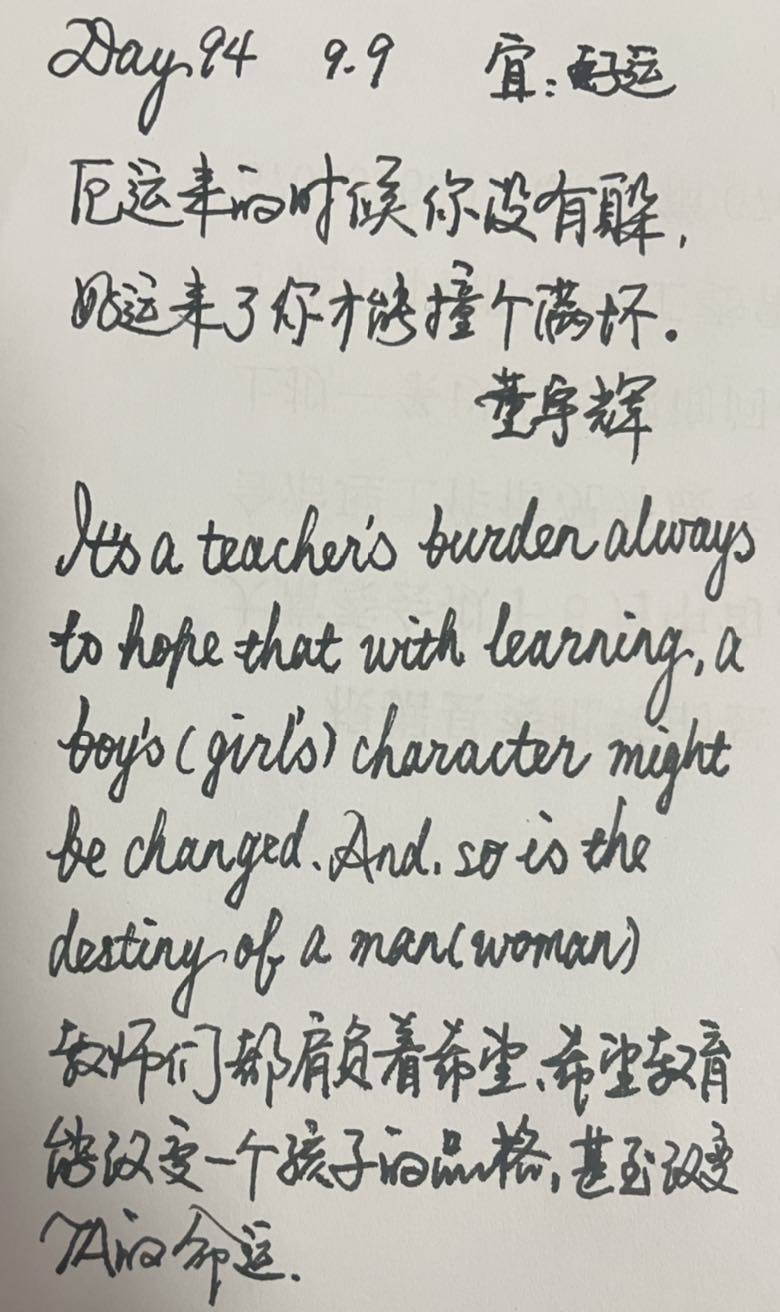 Day 94 9.9 宜：好运
厄运来的时候你没有躲，
好运来了你才能撞个满怀。
董宇辉
It's a teacher's burden always
to hope that with learning, a
boy's (girl's) character might
be changed. And. so is the
destiny of a man(woman)
教师们都肩负着希望、希望教育
能改变一个孩子的品格，甚至改变
TA的命运.